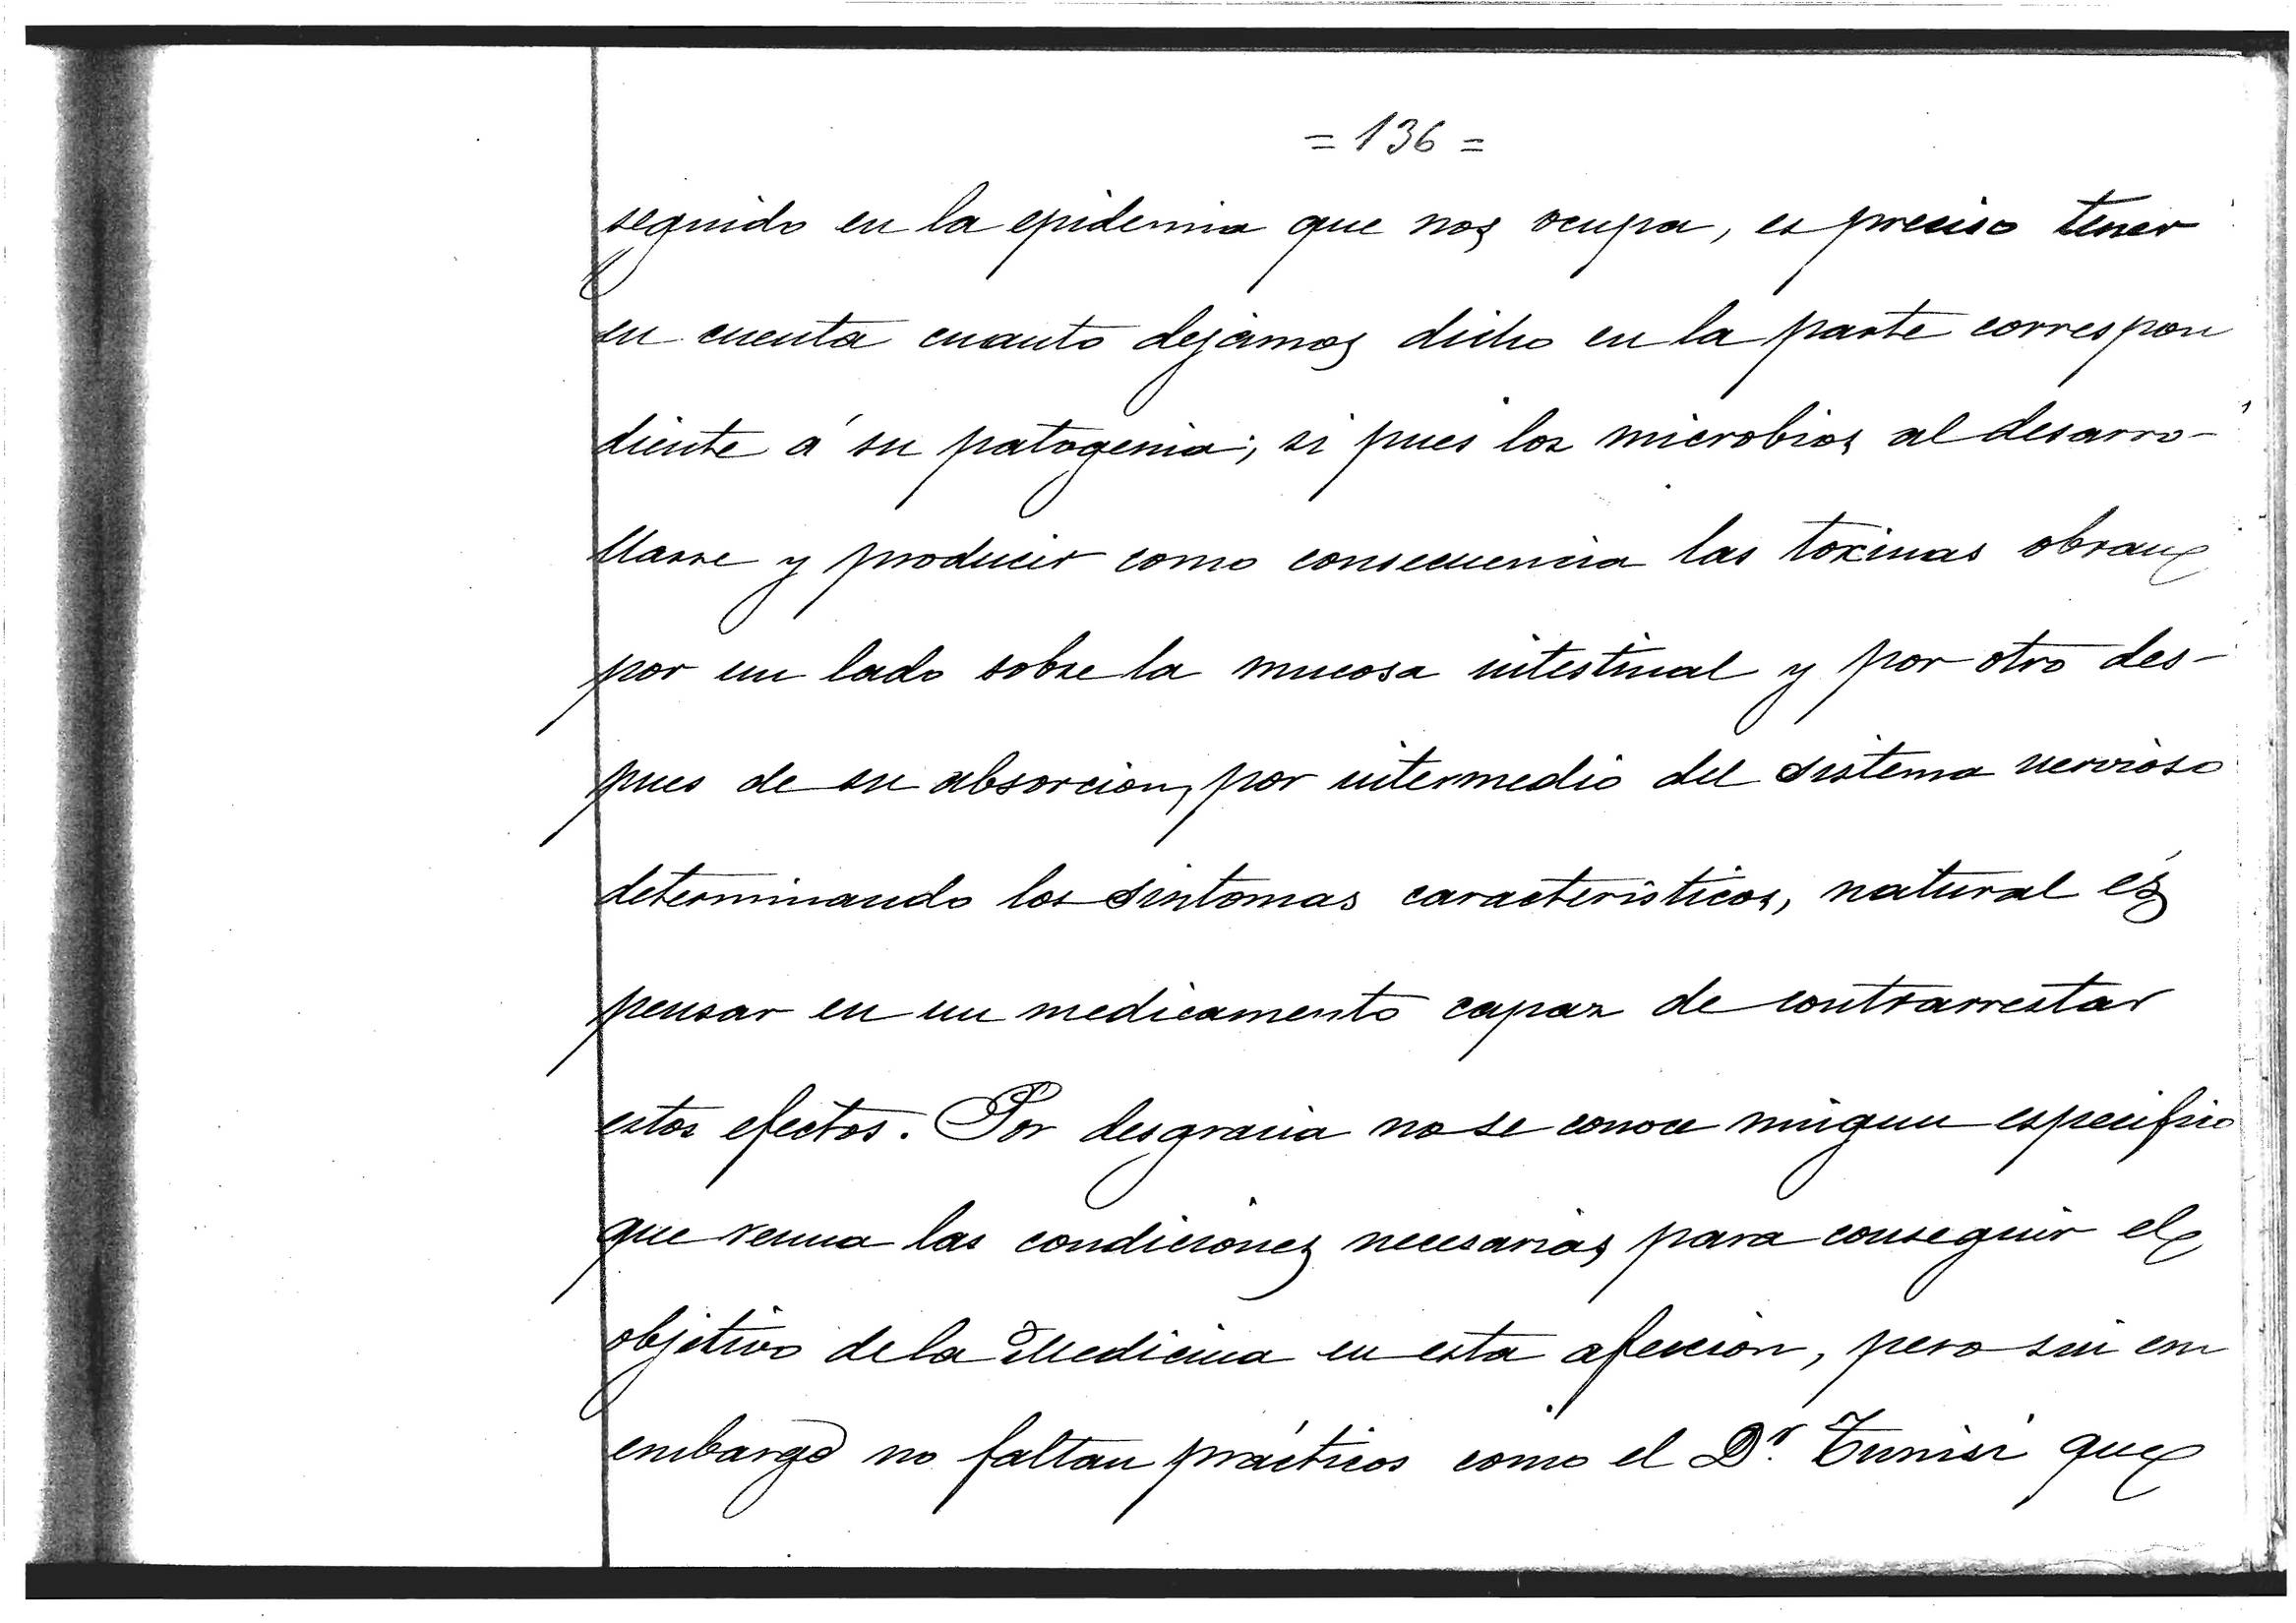 = 136 =
seguido en la epidemia que nos ocupa, es preciso tener
en cuenta cuanto dejamos dicho en la parte correspon
diente á su patogenia; si pues los microbios al desarro-
llarse y producir como consecuencia las toxinas obran
por un lado sobre la mucosa intestinal y por otro des-
pues de su absorcion, por intermedio del sistema nervioso
determinando los sintomas caracteristicos, natural és
pensar en un medicamento capaz de contrarrestar
estos efectos. Por desgracia no se conoce ningun especifico
que reuna las condiciones necesarias para conseguir el
objetivo de la Medicina en esta afeccion, pero sin em
embargo no faltan prácticos como el Dr. Tunisi que